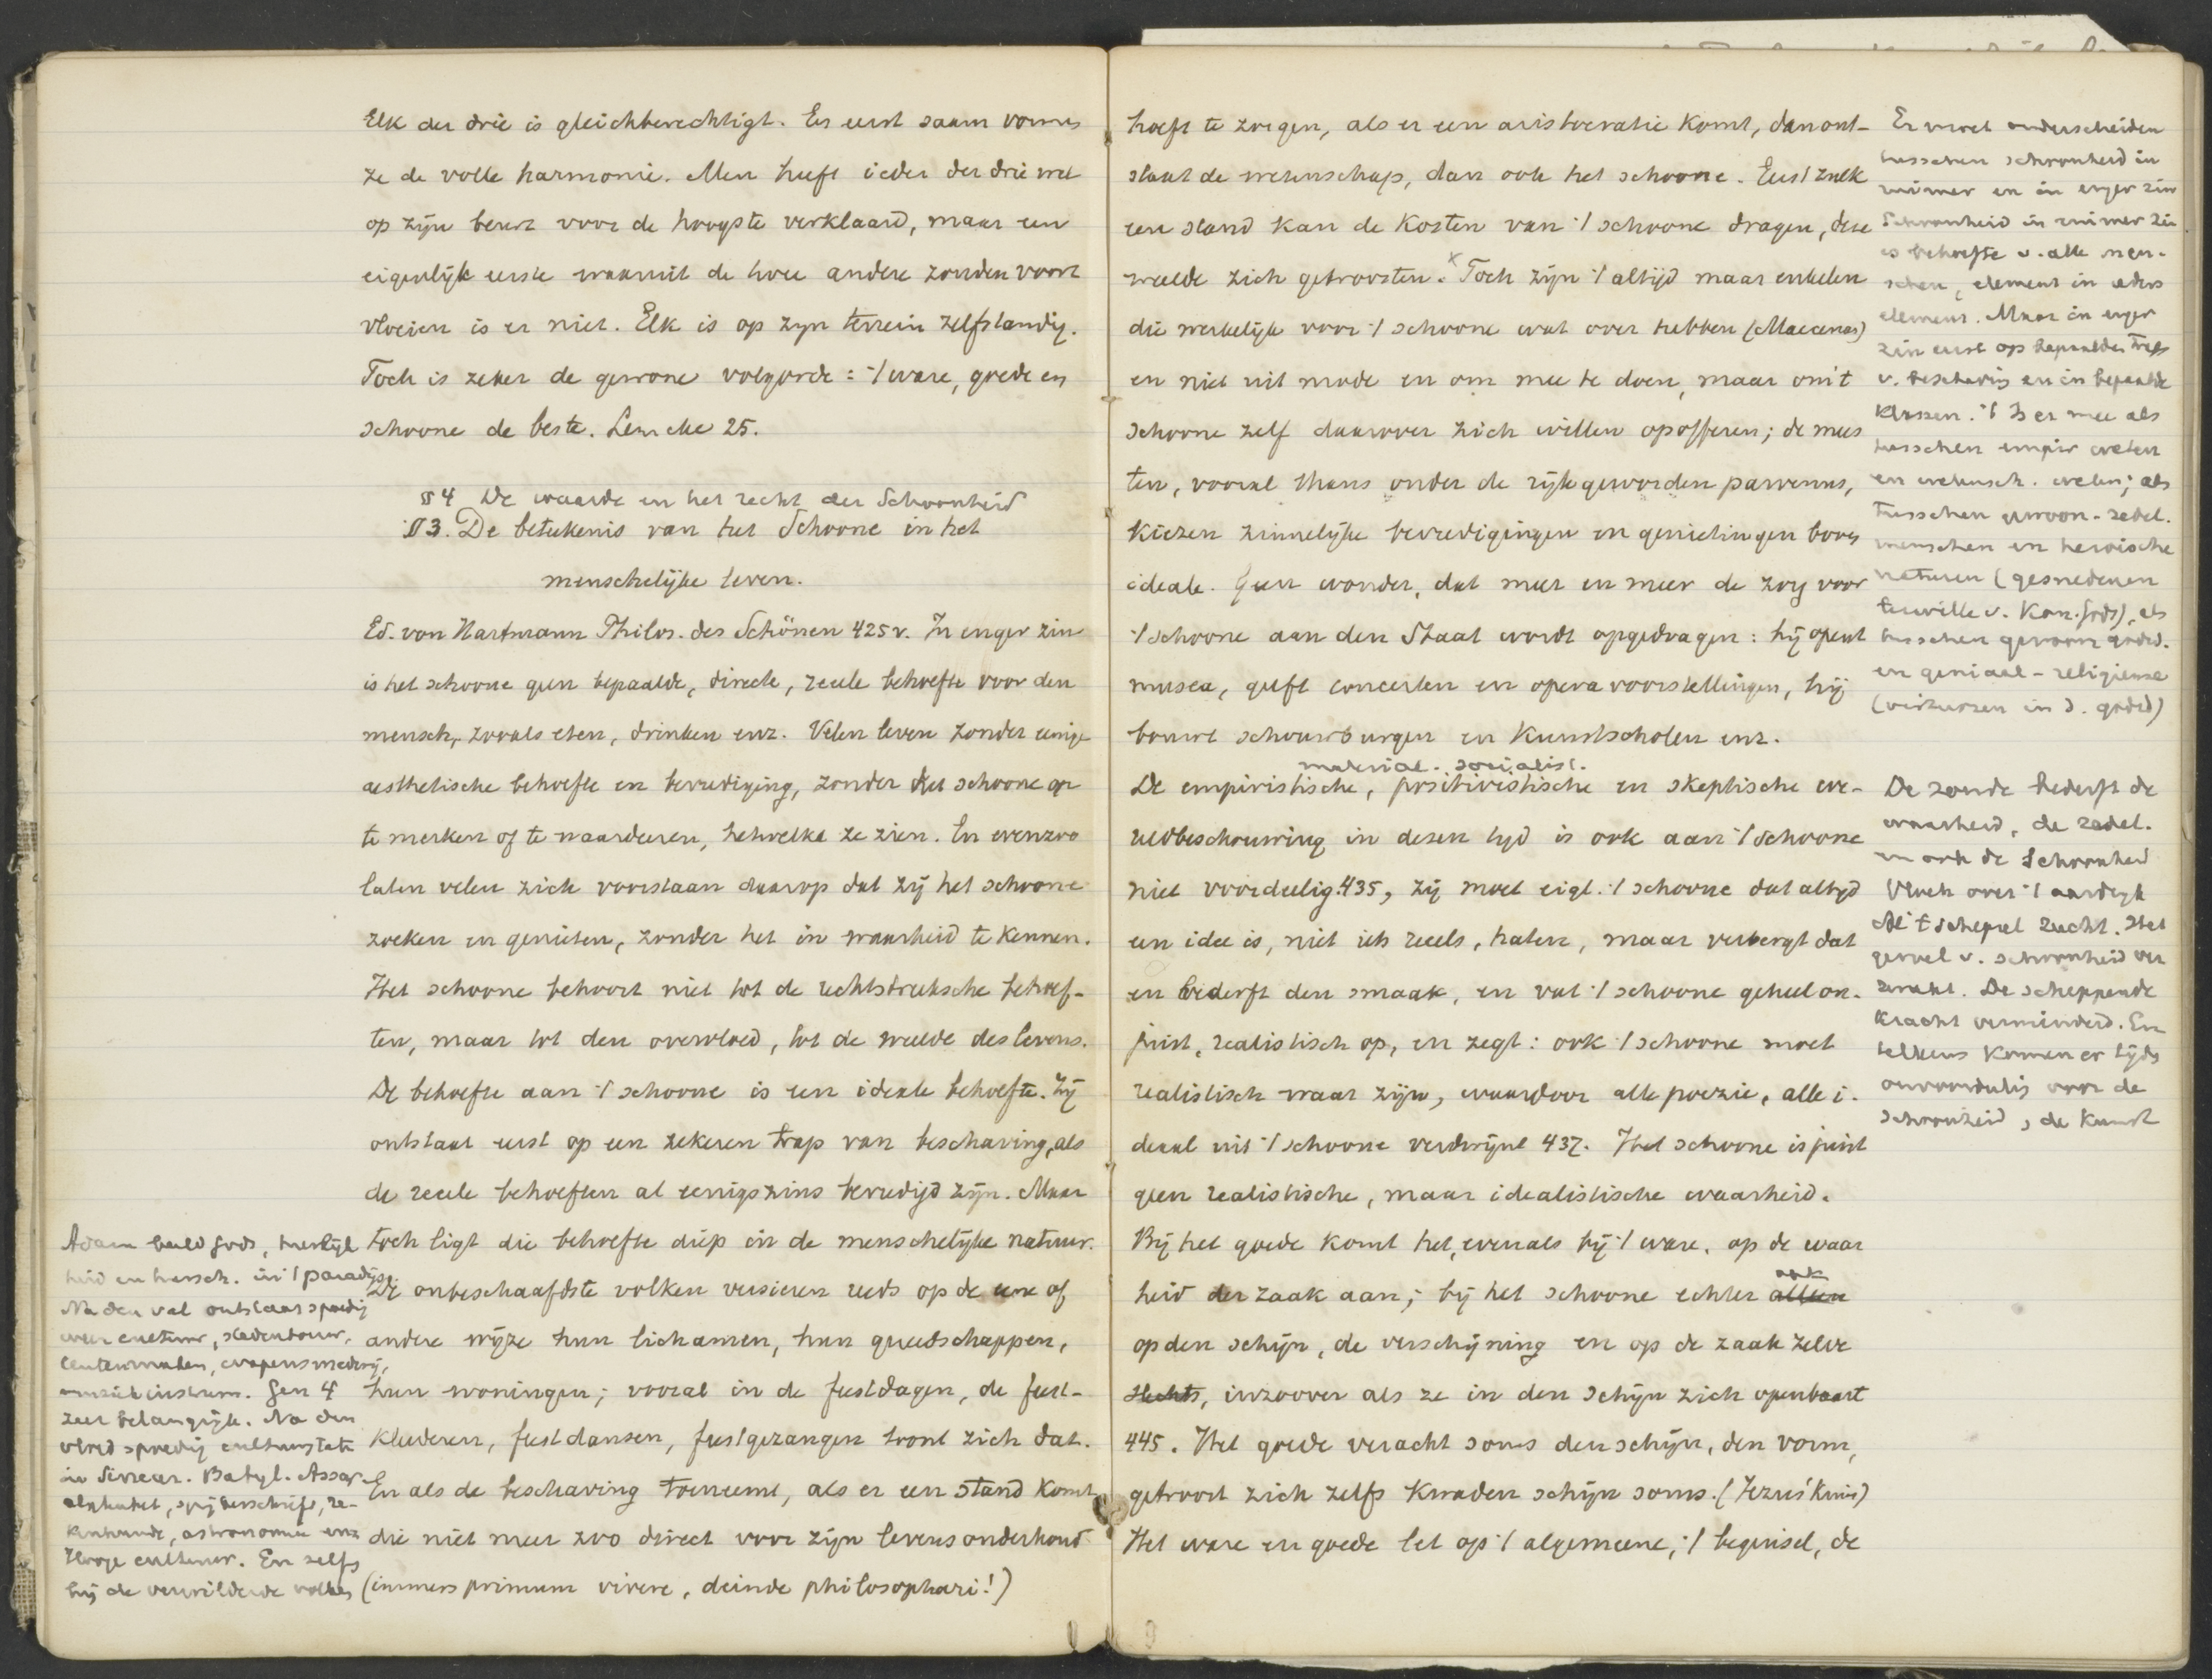 Elk der drie is gleichberechtigt. En eerst saam vormen
ze de volle harmonie. Men heeft ieder der drie wel
op zijn beurt voor de hoogste verklaard, maar een
eigenlijk eerste waaruit de twee andere zouden voort
vloeien is er niet. Elk is op zijn terrein zelfstandig.
Toch is zeker de gewone volgorde: 't ware, goede en
schoone de beste. Lemcke 25.
§ 4 De waarde en het recht der Schoonheid
§ 3. De beteekenis van het Schoone in het
menschelijke leven.
Ed. von Hartmann Philos. des Schönen 425 v. In enger zin
is het schoone geen bepaalde, directe, reeele behoefte voor den
mensch, zooals eten, drinken enz. Velen leven zonder eenige
aesthetische behoefte en bevrediging, zonder het schoone op
te merken of te waardeeren, hetwelk ze zien. En evenzoo
laten velen zich voorstaan daarop dat zij het schoone
zoeken en genieten, zonder het in waarheid te kennen.
Het schoone behoort niet tot de rechtstreeksche behoef-
ten, maar tot den overvloed, tot de weelde des levens.
De behoefte aan 't schoone is een ideale behoefte. Zij
ontstaat eerst op een zekeren trap van beschaving, als
de reeele behoeften al eenigszins bevredigd zijn. Maar
toch ligt die behoefte diep in de menschelijke natuur.
De onbeschaafdste volken versieren reeds op de eene of
andere wijze hun lichamen, hun gereedschappen,
hun woningen; vooral in de feestdagen, de feest-
kleederen, feestdansen, feestgezangen toont zich dat.
En als de beschaving toeneemt, als er een stand komt
die niet meer zoo direct voor zijn levensonderhoud
(immers primum vivere, deinde philosophari!)
Adam beeld Gods, heerlijk
heid en heersch. in 't paradijs
Na den val ontstaat spoedig
weer cultuur, stedenbouw,
tentenmaken, wapensmederij,
muziekinstrum. Gen 4
zeer belangrijk. Na den
vloed spoedig cultuurstaten
in Sinear. Babyl. Assyr.
alphabet, spijkerschrift, re-
kenkunde, astronomie enz
Hooge cultuur. En zelfs
bij de verwilderde volken
hoeft te zorgen, als er een aristocratie komt, dan ont-
staat de wetenschap, dan ook het schoone. Eerst zulk
een stand kan de kosten van 't schoone dragen, deze
weelde zich getroosten. x Toch zijn 't altijd maar enkelen
die werkelijk voor 't schoone wat over hebben (Maecenas)
en niet uit mode en om mee te doen, maar om 't
schoone zelf daarvoor zich willen opofferen; de mees
ten, vooral thans onder de rijk geworden parvenus,
kiezen zinnelijke bevredigingen en genietingen boven
ideale. Geen wonder, dat meer en meer de zorg voor
't schoone aan den Staat wordt opgedragen: hij opent
musea, geeft concerten en opera voorstellingen, hij
bouwt schouwburgen en Kunstscholen enz.
material. socialist.
De empiristische, positivistische en skeptische we-
reldbeschouwing in dezen tijd is ook aan 't schoone
niet voordeelig 435, zij moet eigl. 't schoone dat altijd
een idee is, niet iets reeels, haten, maar verbergt dat
en bederft den smaak, en vat 't schoone geheel on-
juist, realistisch op, en zegt: ook 't schoone moet
realistisch waar zijn, waardoor alle poezie, alle i-
deaal uit 't schoone verdwijnt 437. Het schoone is juist
geen realistische, maar idealistische waarheid.
Bij het goede komt het, evenals bij 't ware, op de waar
heid der zaak aan; bij het schoone echter alleen ook
op den schijn, de verschijning en op de zaak zelve
slechts, inzoover als ze in den schijn zich openbaart
445. Het goede veracht soms den schijn, den vorm,
getroost zich zelfs kwaden schijn soms. (Jezus' kruis)
Het ware en goede let op 't algemeene, 't beginsel, de
Er moet onderscheiden
tusschen schoonheid in
ruimer en in enger zin
Schoonheid in ruimer zin
is behoefte v. alle men-
schen, element in ieders
element. Maar in enger
zin eerst op bepaalden trap
v. beschaving en in bepaalde
klassen. 't Is er mee als
tusschen empir weten
en wetensch. weten; als
tusschen gewoon-zedel.
menschen en heroische
naturen (gesnedenen
terwille v. Kon. Gods), als
tusschen gewoon godsd.
en geniaal-religieuse
(virtuozen in d. godsd)
De zonde bederft de
waarheid, de zedel.
en ook de Schoonheid
Vloek over 't aardrijk
Al 't schepsel zucht. Het
gevoel v. schoonheid ver
zwakt. De scheppende
kracht verminderd. En
telkens komen er tijden
onvoordeelig voor de
schoonheid, de kunst